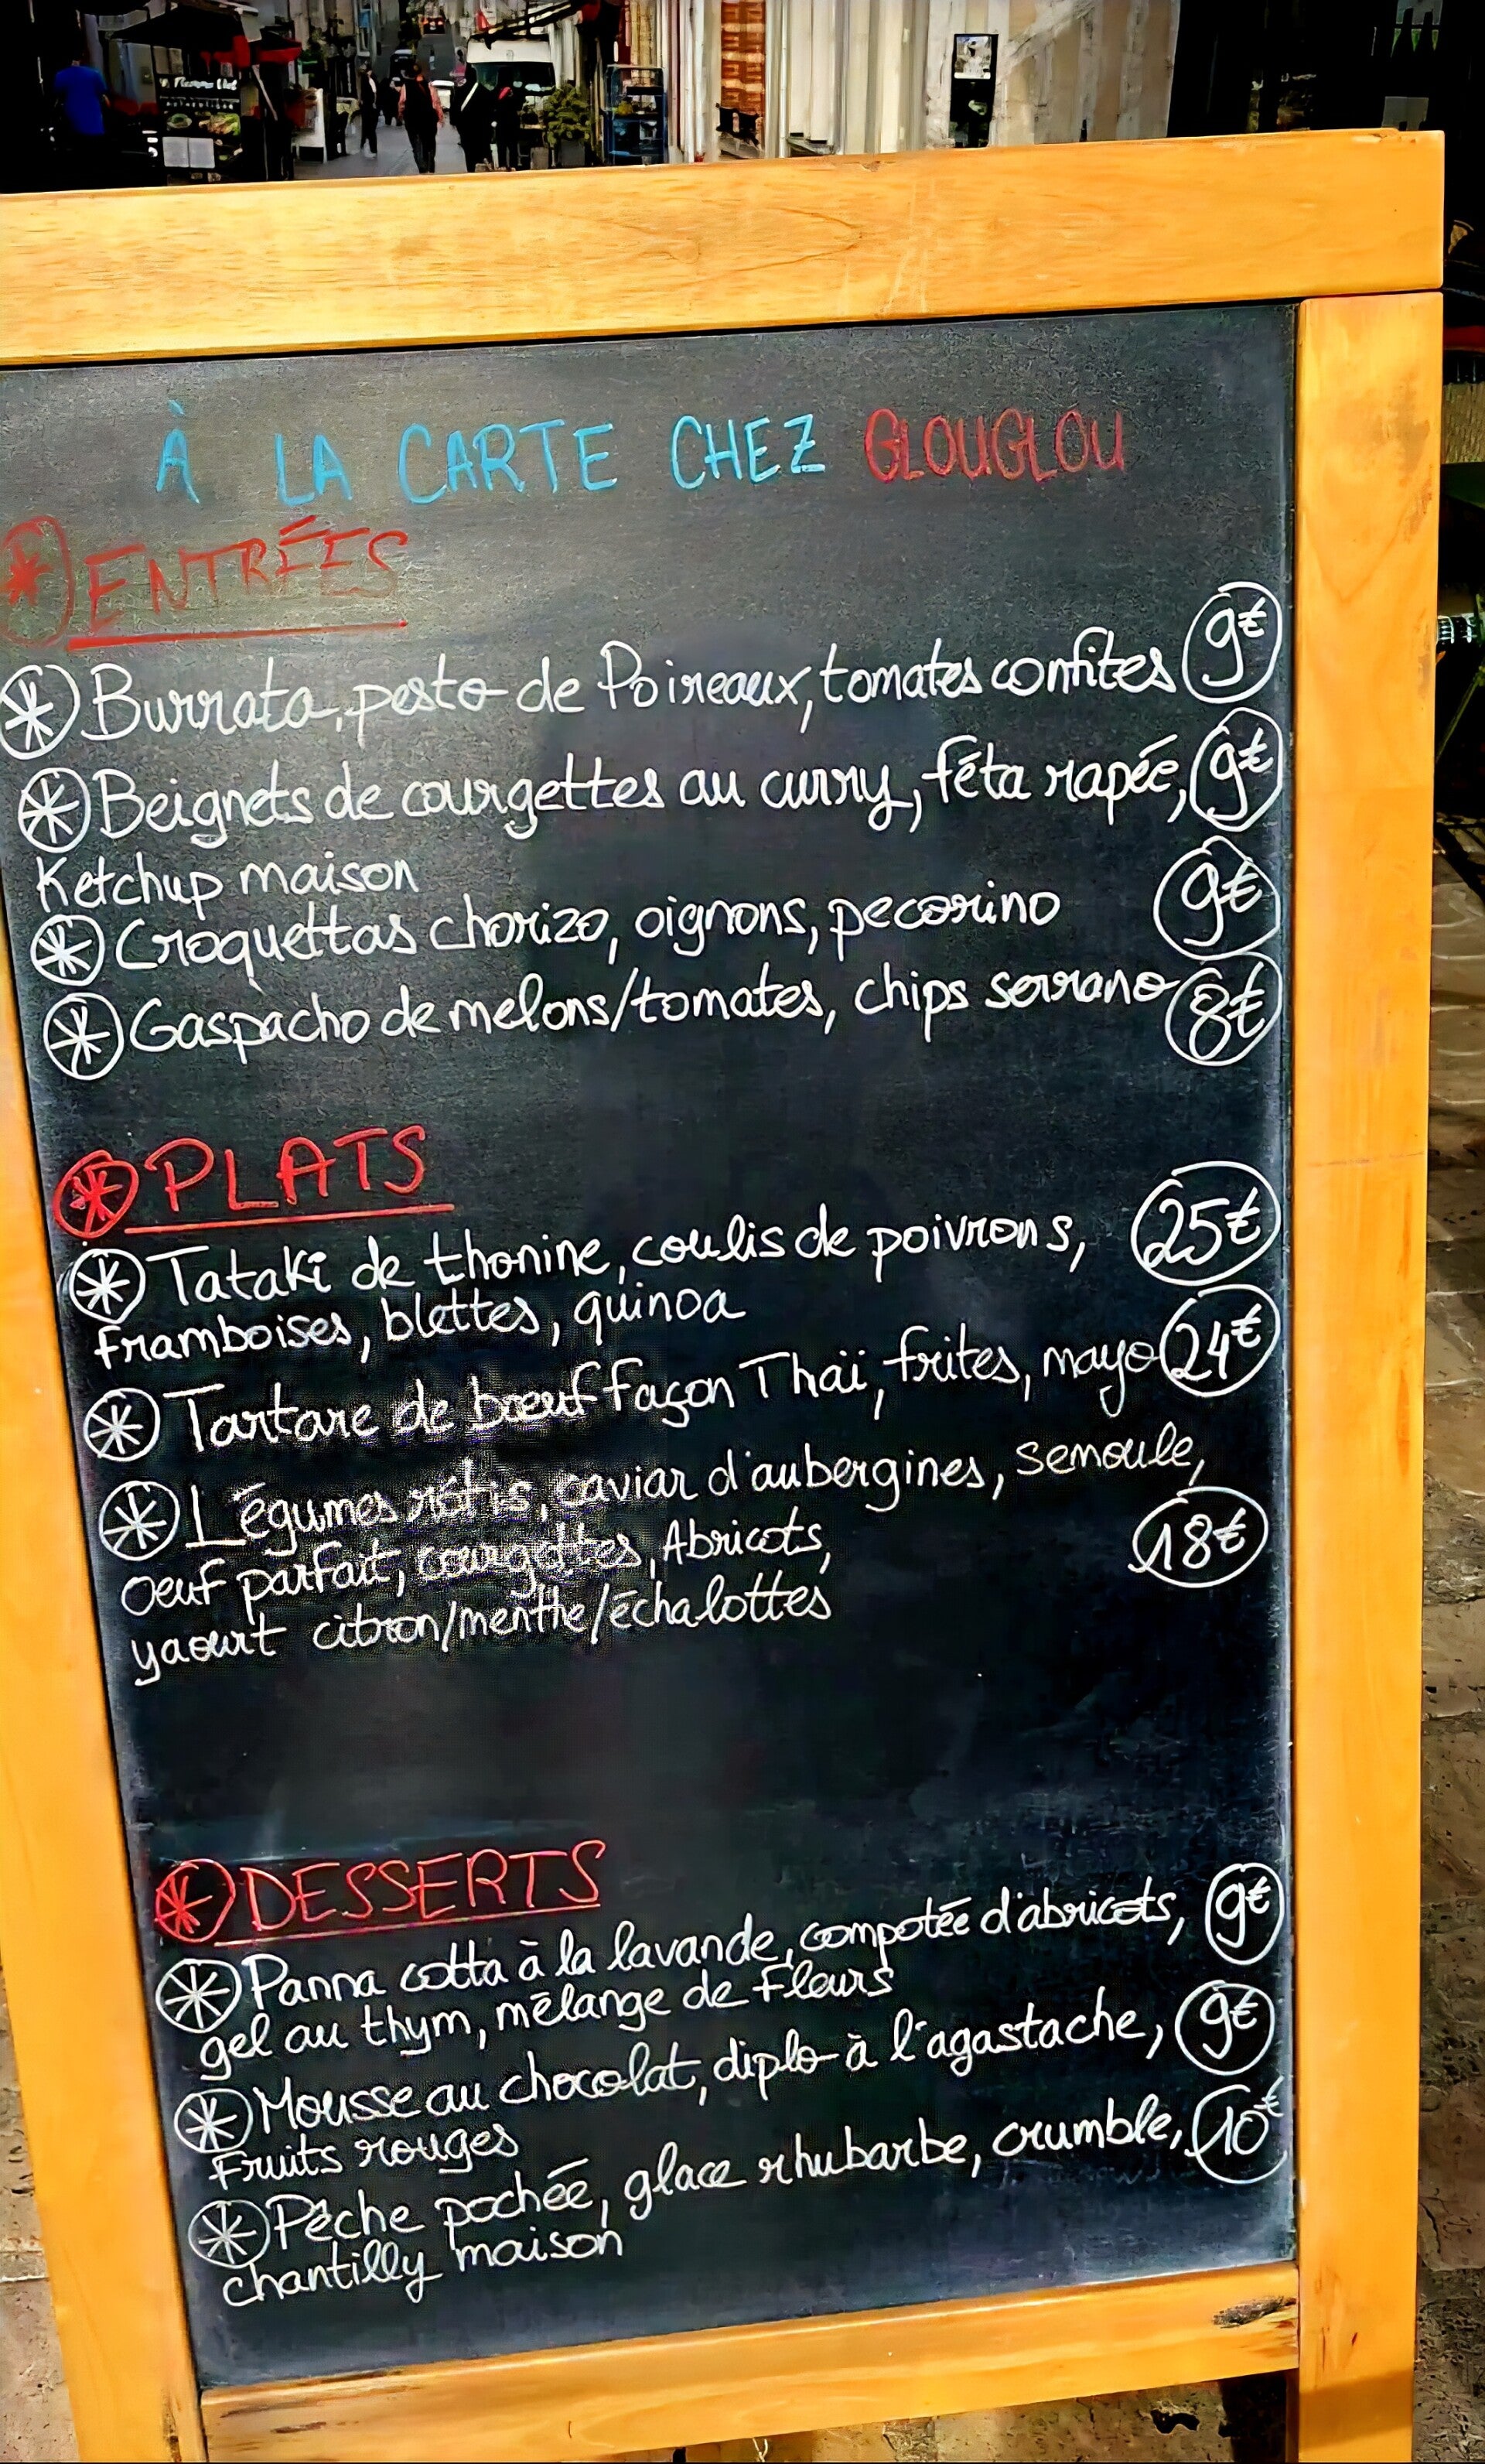 À LA CARTE CHEZ GLOUGLOU
ENTRÉES
Burrata, pesto de Poireaux, tomates confites 9€
Beignets de courgettes au curry, féta rapée, 9€
Ketchup maison
Croquettas chorizo, oignons, pecorino 9€
Gaspacho de melons/tomates, chips serrano 8€
PLATS
Tataki de thonine, coulis de poivrons, 25€
framboises, blettes, quinoa
Tartare de bœuf façon Thaï, frites, mayo 24€
Légumes rôtis, caviar d'aubergines, semoule,
oeuf parfait, courgettes, Abricots, 18€
yaourt citron/menthe/échalottes
DESSERTS
Panna cotta à la lavande, compotée d'abricots, 9€
gel au thym, mélange de fleurs
Mousse au chocolat, diplo à l'agastache, 9€
Fruits rouges
Pêche pochée, glace rhubarbe, crumble, 10€
chantilly maison